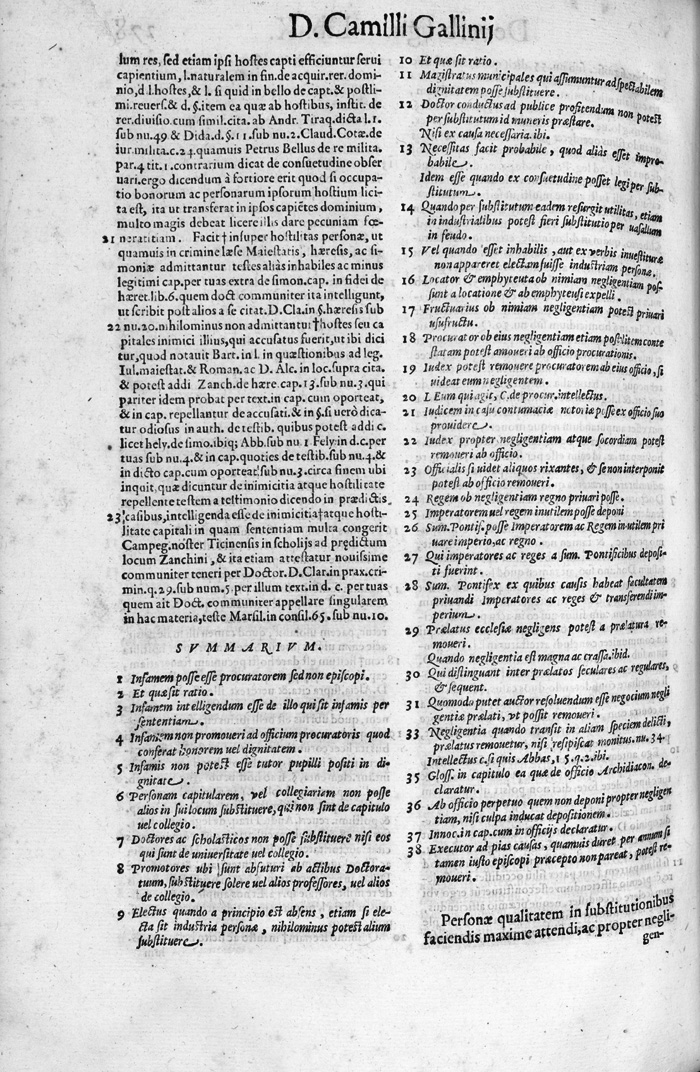 D. Camilli Gallinij
lum res, sed etiam ipsi hostes capti efficiuntur serui
capientium, l.naturalem in fin.de acquir.rer. domi-
nio, d.l.hostes, & l. si quid in bello de capt. & postli-
mi.reuers. & d. §.item ea quæ ab hostibus, instit. de
rer.diuisio.cum simil.cita. ab Andr. Tiraq.dicta l.1.
sub nu.49 & Dida.d. §.11.sub nu.2.Claud.Cotæ.de
iur.milita.c.24.quamuis Petrus Bellus de re milita.
par.4 tit.1.contrarium dicat de consuetudine obser
uari.ergo dicendum à fortiore erit quod si occupa-
tio bonorum ac personarum ipsorum hostium lici-
ta est, ita ut transferat in ipsos capiẽtes dominium,
multo magis debeat licere illis dare pecuniam fœ-
21 neratitiam. Facit† insuper hostilitas personæ, ut
quamuis in crimine læse Maiestatis, hæresis, ac si-
moniæ admittantur testes alias inhabiles ac minus
legitimi cap.per tuas extra de simon.cap. in fidei de
hæret.lib.6.quem doct communiter ita intelligunt,
ut scribit post alios a se citat. D.Cla.in §.hæresis sub
22 nu.20.nihilominus non admittantur †hostes seu ca
pitales inimici illius, qui accusatus fuerit, ut ibi dici
tur, quod notauit Bart. in l. in quæstionibus ad leg.
Iul.maiestat.& Roman. ac D. Alc. in loc.supra cita.
& potest addi Zanch.de hære.cap.13.sub nu.3.qui
pariter idem probat per text.in cap.cum oporteat,
& in cap. repellantur de accusati. & in §.si uerò dica-
tur odiosus in auth. de testib. quibus potest addi c.
licet hely.de simo.ibiq; Abb.sub nu.1 Fely in d.c.per
tuas sub nu.4.& in cap.quoties de testib.sub nu.4.&
in dicto cap.cum oporteat sub nu.3.circa finem ubi
inquit, quæ dicuntur de inimicitia atque hostilitate
repellente testem a testimonio dicendo in prædictis
23 casibus, intelligenda esse de inimicitia†atque hosti-
litate capitali in quam sententiam multa congerit
Campeg.noster Ticinensis in scholijs ad prędictum
locum Zanchini, & ita etiam attestatur nouissime
communiter teneri per Doctor. D.Clar.in prax.cri-
min.q.29.sub num.5 per illum text.in d. c. per tuas
quem ait Doct. communiter appellare singularem
in hac materia, teste Marsil.in consil.65.sub nu.10.
SVMMARIVM.
1 Infamem posse esse procuratorem sed non episcopi.
2 Et quæ sit ratio.
3 Infamem intelligendum esse de illo qui sit infamis per
sententiam.
4 Infamem non promoueri ad officium procuratoris quod
conferat honorem uel dignitatem.
5 Infamis non potest esse tutor pupilli positi in di-
gnitate.
6 Personam capitularem, vel collegiariam non posse
alios in sui locum substituere, qui non sint de capitulo
uel collegio.
7 Doctores ac scholasticos non posse substituere nisi eos
qui sunt de uniuersitate uel collegio.
8 Promotores ubi sunt absuturi ab actibus Doctora-
tuum, substituere solere uel alios professores, uel alios
de collegio.
9 Electus quando a principio est absens, etiam si ele-
cta sit industria personæ, nihilominus potest alium
substituere.
10 Et quæ sit ratio.
11 Magistratus municipales qui assumuntur ad spectabilem
dignitatem posse substituere.
12 Doctor conductus ad publice profitendum non potest
per substitutum id muneris præstare.
Nisi ex causa necessaria. ibi.
13 Necessitas facit probabile, quod aliàs esset impro-
babile.
Idem esse quando ex consuetudine posset legi per sub-
stitutum.
14 Quando per substitutum eadem resurgit utilitas, etiam
in industrialibus potest fieri substitutio per uasallum
in feudo.
15 Vel quando esset inhabilis, aut ex verbis inuestituræ
non appareret electam fuisse industriam personæ.
16 Locator & emphyteuta ob nimiam negligentiam pos-
sunt a locatione & ab emphyteusi expelli.
17 Fructuarius ob nimiam negligentiam potest priuari
usufructu.
18 Procurator ob eius negligentiam etiam post litem conte
statam potest amoueri ab officio procurationis.
19 Iudex potest remouere procuratorem ab eius officio, si
uideat eum negligentem.
20 L Eum qui agit, C.de procur.intellectus.
21 Iudicem in casu contumaciæ notoriæ posse ex officio suo
prouidere.
22 Iudex propter negligentiam atque socordiam potest
remoueri ab officio.
23 Officialis si uidet aliquos rixantes, & se non interponit
potest ab officio remoueri.
24 Regem ob negligentiam regno priuari posse.
25 Imperatorem uel regem inutilem posse deponi
26 Sum.Pontif.posse Imperatorem ac Regem inutilem pri
uare imperio, ac regno.
27 Qui imperatores ac reges a sum. Pontificibus deposi-
ti fuerint.
28 Sum. Pontifex ex quibus causis habeat facultatem
priuandi Imperatores ac reges & transferendi im-
perium.
29 Prælatus ecclesiæ negligens potest a prælatura re-
moueri.
Quando negligentia est magna ac crassa.ibid.
30 Qui distinguant inter prælatos seculares ac regulares,
& sequent.
31 Quomodo putet auctor resoluendum esse negocium negli
gentiæ prælati, vt possit remoueri.
33 Negligentia quando transit in aliam speciem delicti,
prælatus remouetur, nisi resipiscat monitus.nu.34.
Intellectus c.si quis Abbas, 15.q.2.ibi.
35 Gloss. in capitulo ea quæ de officio Archidiacon. de-
claratur.
36 Ab officio perpetuo quem non deponi propter negligen
tiam, nisi culpa inducat depositionem.
37 Innoc.in cap.cum in officijs declaratur.
38 Executor ad pias causas, quamuis duret per annum si
tamen iusto episcopi præcepto non pareat, potest re-
moueri.
Personæ qualitatem in substitutionibus
faciendis maxime attendi, ac propter negli-
gen-